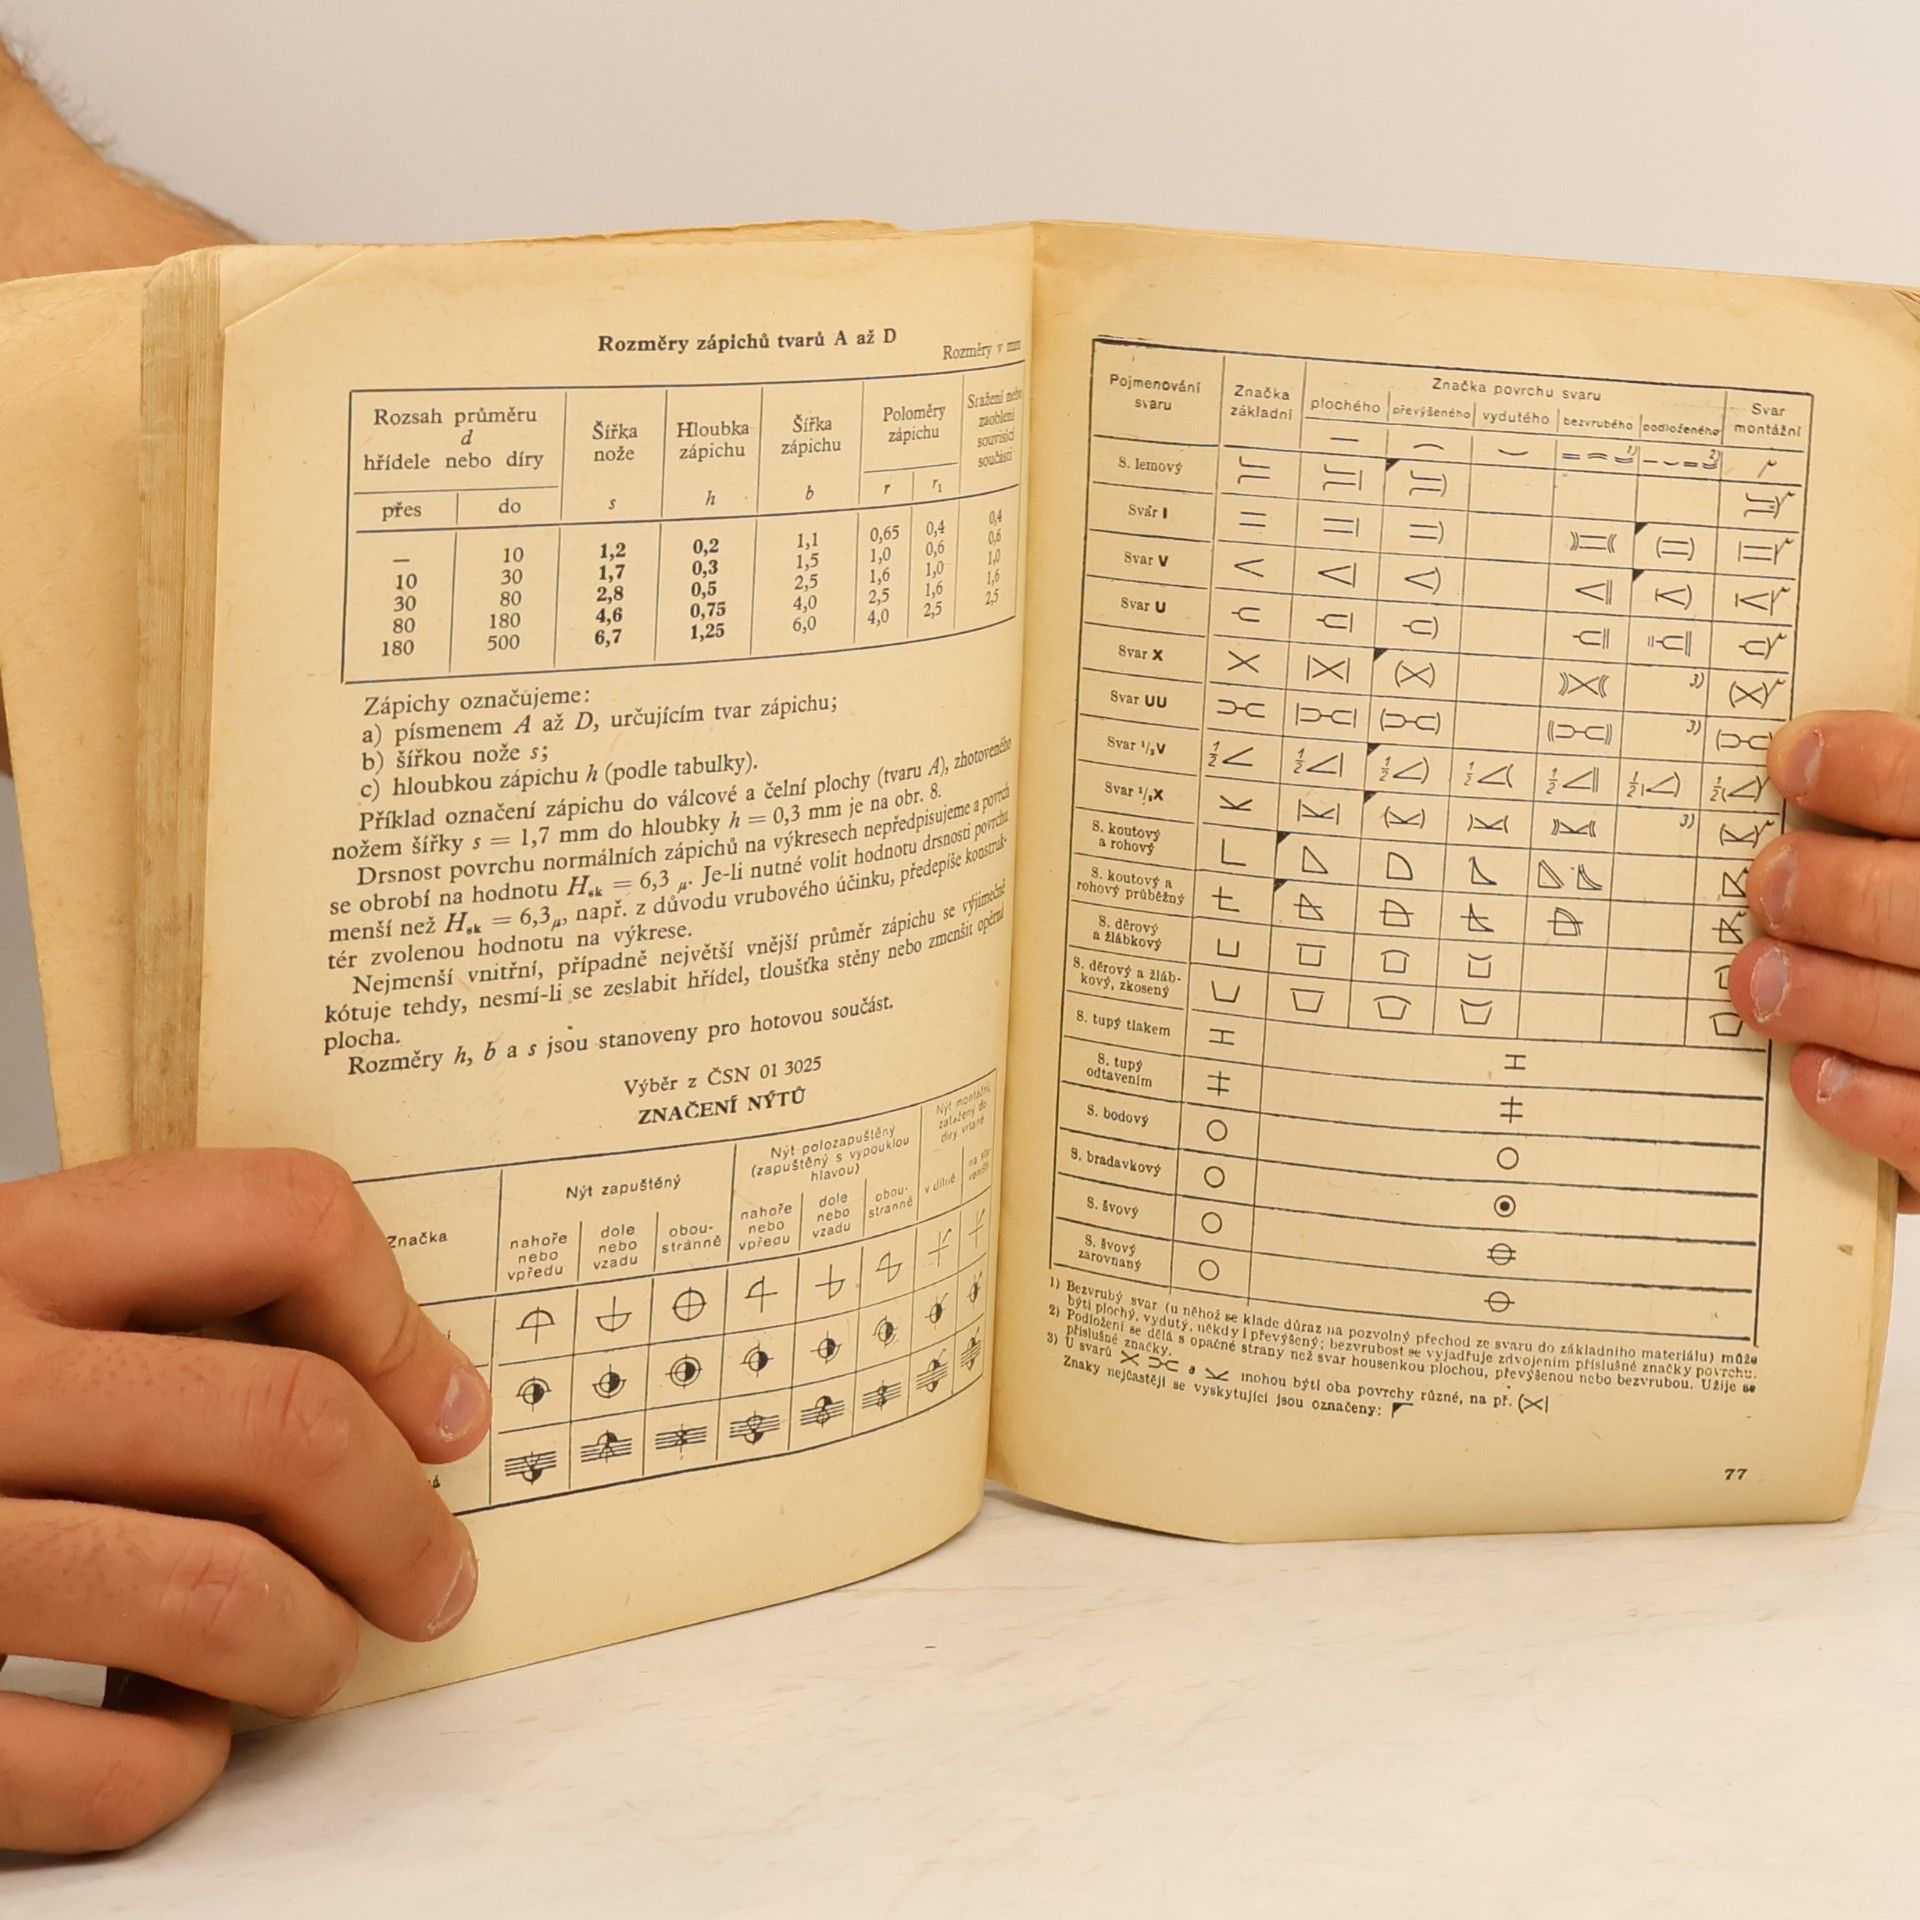 Rozměry zápichů tvarů A až D
Rozměry v mm
Rozsah průměru
d
hřídele nebo díry
Šířka
nože
s
Hloubka
zápichu
h
Šířka
zápichu
b
Poloměry
zápichu
r r₁
Sražení nebo
zaoblení
souvisící
součásti
přes do
— 10 1,2 0,2 1,1 0,65 0,4 0,4
10 30 1,7 0,3 1,5 1,0 0,6 0,6
30 80 2,8 0,5 2,5 1,6 1,0 1,0
80 180 4,6 0,75 4,0 2,5 1,6 1,6
180 500 6,7 1,25 6,0 4,0 2,5 2,5
Zápichy označujeme:
a) písmenem A až D, určujícím tvar zápichu;
b) šířkou nože s;
c) hloubkou zápichu h (podle tabulky).
Příklad označení zápichu do válcové a čelní plochy (tvaru A), zhotoveného
nožem šířky s = 1,7 mm do hloubky h = 0,3 mm je na obr. 8.
Drsnost povrchu normálních zápichů na výkresech nepředpisujeme a povrch
se obrobí na hodnotu Hsk = 6,3 μ. Je-li nutné volit hodnotu drsnosti povrchu
menší než Hsk = 6,3μ, např. z důvodu vrubového účinku, předepíše konstruk-
tér zvolenou hodnotu na výkrese.
Nejmenší vnitřní, případně největší vnější průměr zápichu se výjimečně
kótuje tehdy, nesmí-li se zeslabit hřídel, tloušťka stěny nebo zmenšit opěrná
plocha.
Rozměry h, b a s jsou stanoveny pro hotovou součást.
Výběr z ČSN 01 3025
ZNAČENÍ NÝTŮ
Značka
Nýt zapuštěný
nahoře
nebo
vpředu
dole
nebo
vzadu
obou-
stranně
Nýt polozapuštěný
(zapuštěný s vypouklou
hlavou)
nahoře
nebo
vpředu
dole
nebo
vzadu
obou-
stranně
Nýt montážní,
zatažený do
díry vrtané
v dílně
na sta-
veništi
Pojmenování
svaru
Značka
základní
Značka povrchu svaru
plochého převýšeného vydutého bezvrubého podloženého
Svar
montážní
1) 2)
S. lemový
Svar I
Svar V
Svar U
Svar X 3)
Svar UU 3)
Svar ¹/₂V ½ ½ ½ ½ ½ ½ ½
Svar ¹/₂X 3)
S. koutový
a rohový
S. koutový a
rohový průběžný
S. děrový
a žlábkový
S. děrový a žláb-
kový, zkosený
S. tupý tlakem
S. tupý
odtavením
S. bodový
S. bradavkový
S. švový
S. švový
zarovnaný
1) Bezvrubý svar (u něhož se klade důraz na pozvolný přechod ze svaru do základního materiálu) může
býti plochý, vydutý, někdy i převýšený; bezvrubost se vyjadřuje zdvojením příslušné značky povrchu.
2) Podložení se dělá s opačné strany než svar housenkou plochou, převýšenou nebo bezvrubou. Užije se
příslušné značky.
3) U svarů a mohou býti oba povrchy různé, na př.
Znaky nejčastěji se vyskytující jsou označeny:
77